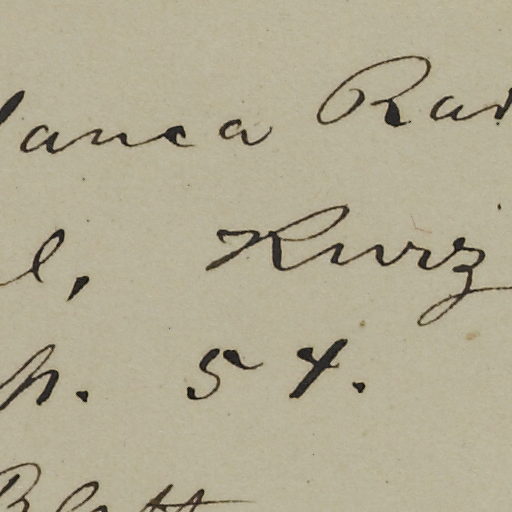 lanca Rad
l, Kurz
p. 54.
Blatt